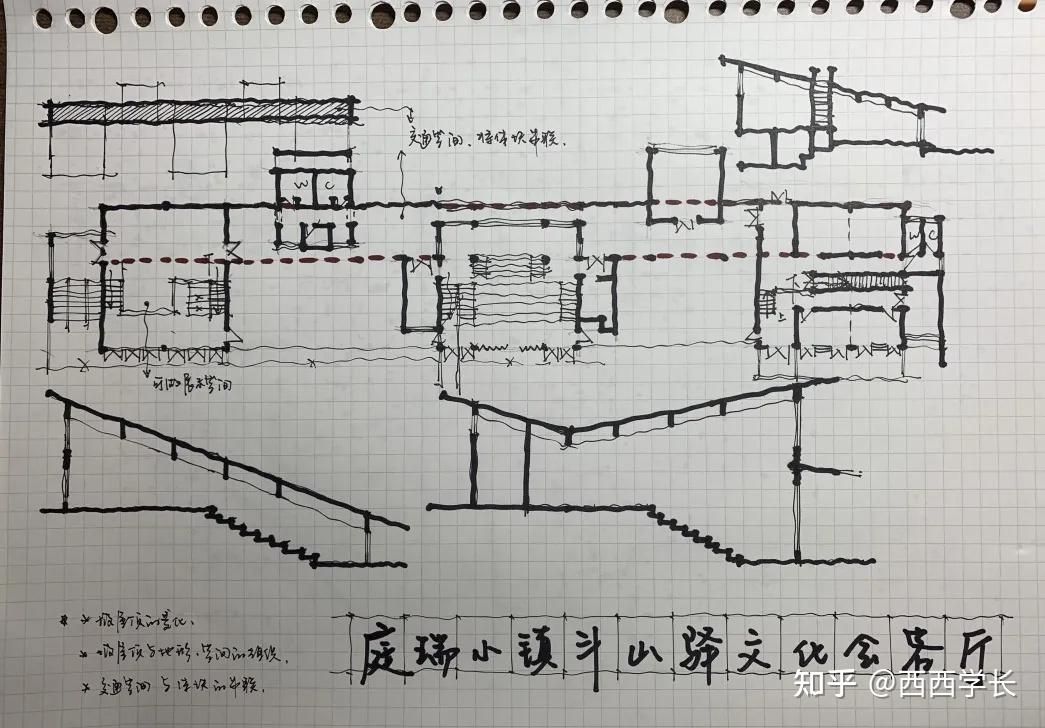 交通空间、将体块串联.
W C
W C
上
可做展示空间
* * 坡屋顶的变化.
* 坡屋顶与地形、空间的组织.
* 交通空间与体块的串联.
庭瑞小镇斗山驿文化会客厅
知乎 @西西学长